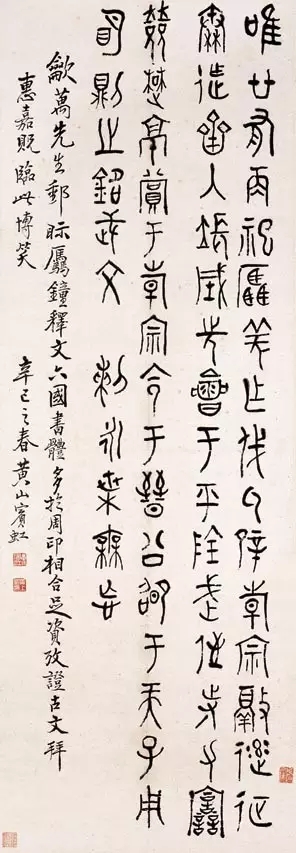 唯廿又再祀驫羌乍戎氒辟倝宗敲征
秦迮齊入張城先會于平陰武侄寺力
敚楚京賞于倝宗令于晉公邵于天子用
明則之銘武文剌永枼忘
萬先生郵眎驫鐘釋文六國書體多於周印相合足資攷證古文拜
惠嘉貺臨此博笑
辛巳之春黃山賓虹